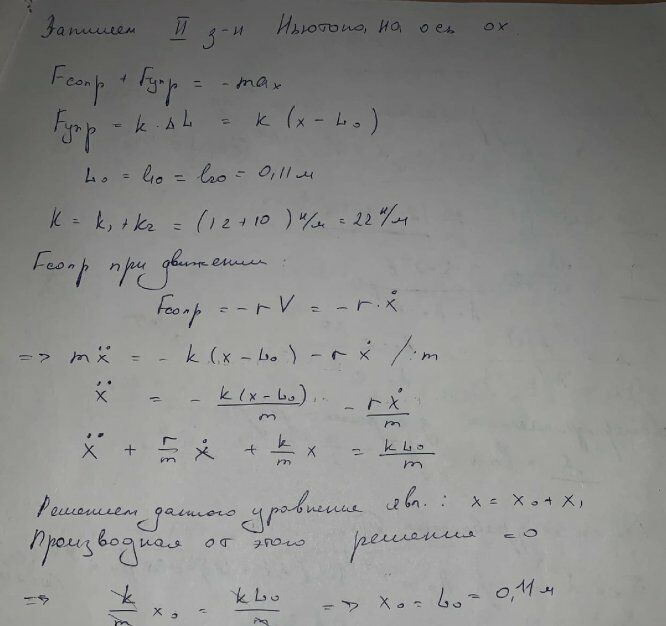 Запишем II з-н Ньютона, на ось ox.
Fсопр + Fупр = - max
Fупр = k · ΔL = k (x - L₀)
L₀ = l₁₀ = l₂₀ = 0,11 м
K = k₁ + k₂ = (12 + 10) н/м = 22 н/м
Fсопр при движении :
Fсопр = - r V = - r · ẋ
=> mẍ = - k (x - L₀) - r ẋ / : m
ẍ = - k(x - L₀)/m - rẋ/m
ẍ + r/m ẋ + k/m x = kL₀/m
Решением данного уравнение явл. : x = x₀ + x₁
Производная от этого решения = 0
=> k/m x₀ = kL₀/m => x₀ = L₀ = 0,11 м